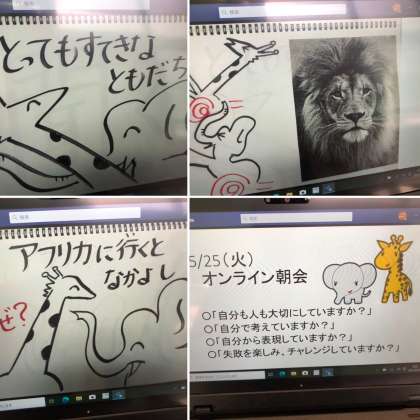 とってもすてきな
ともだち
アフリカに行くと
なかよし
ぜ?
5/25(火)
オンライン朝会
○「自分も人も大切にしていますか?」
○「自分で考えていますか?」
○「自分から表現していますか?」
○「失敗を楽しみ、チャレンジしていますか?」